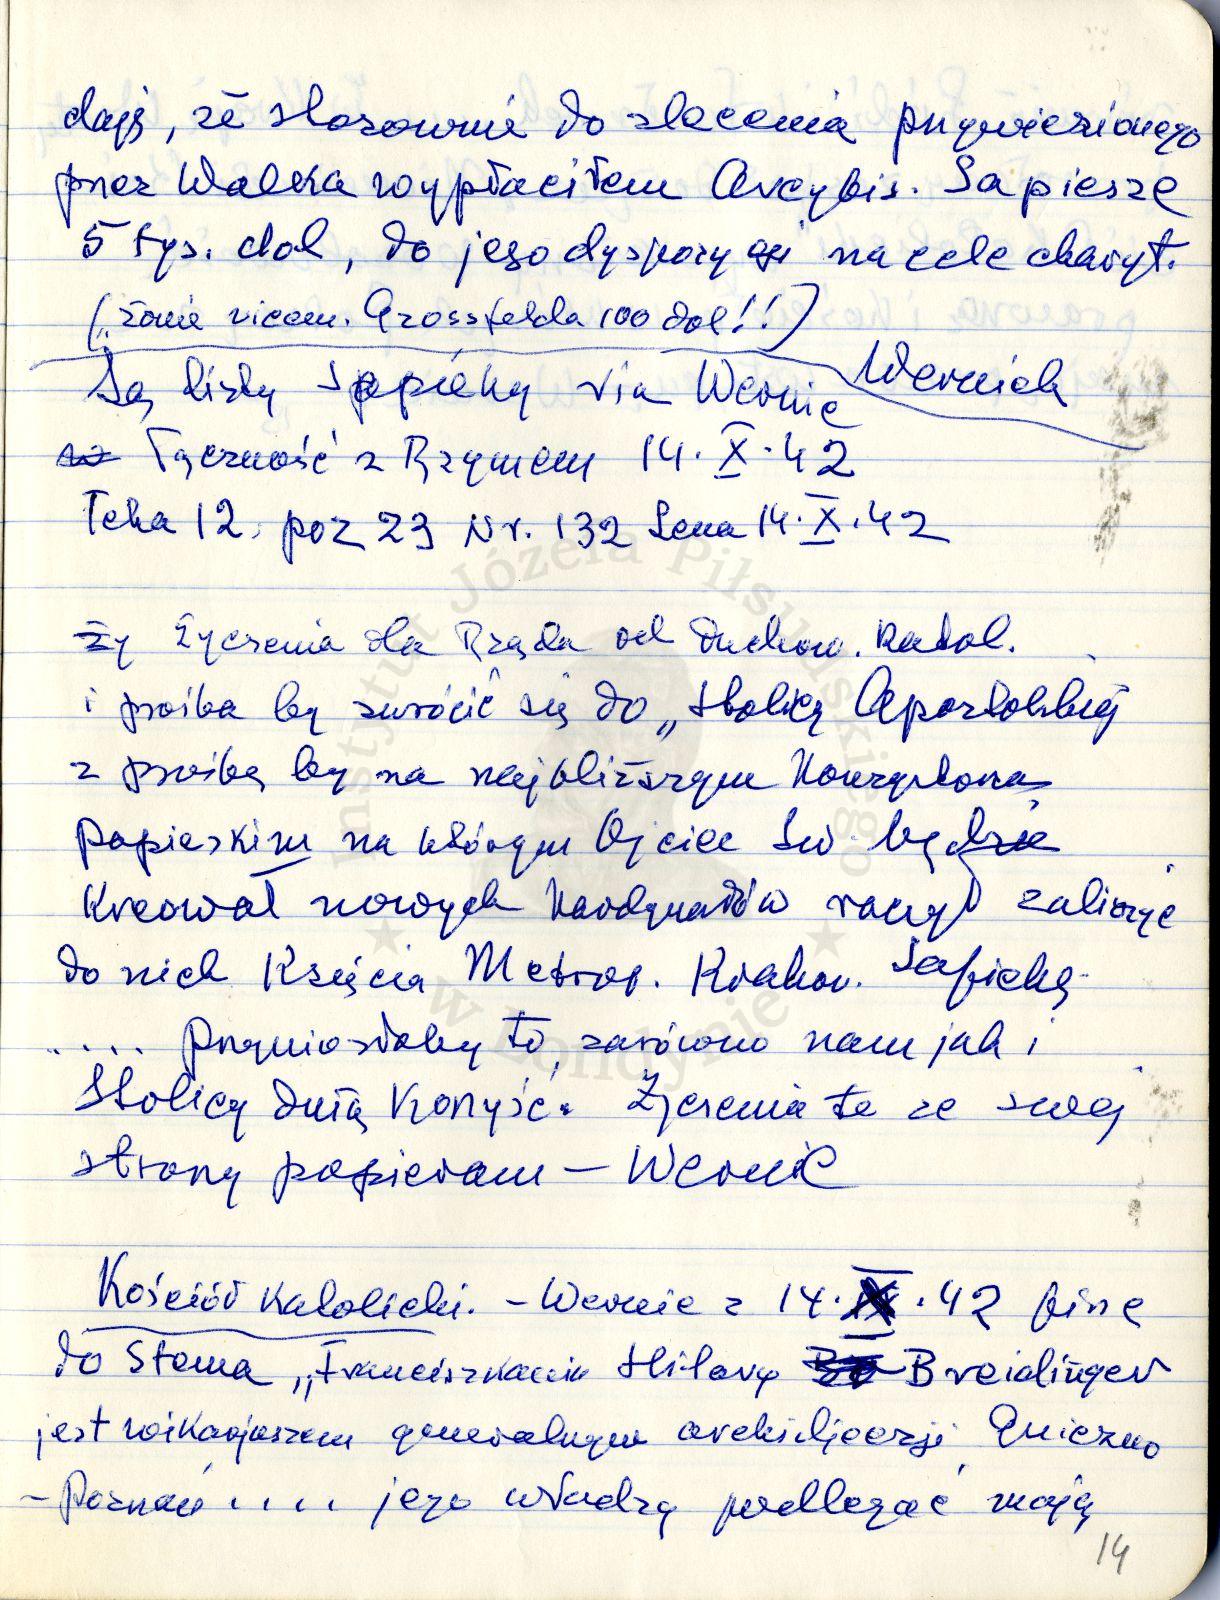 daję, że stosownie do zlecenia przywiezionego
przez Walka wypłaciłem Arcybis. Sapieszę
5 tys. dol, do jego dyspozycji na cele charyt.
(żonie vicem. Grossfelda 100 dol!!)
Są listy Sapiehy via Wernic Wernich
w Łączność z Rzymem 14.X.42
Teka 12, poz 23 Nr. 132 Sena 14.X.42
Ży Życzenia dla Rządu od Duchow. Katol.
i prośba by zwrócić się do „Stolicy Apostolskiej
z prośbą by na najbliższym Konzystorzu
Papieskim na którym Ojciec Św będzie
Kreował nowych Kardynałów raczył zaliczyć
do nich Księcia Metrop. Krakow. Sapiehę
.... Przyniosłoby to, zarówno nam jak i
Stolicy dużą korzyść. Życzenia te ze swej
strony popieram – Wernic
Kościół Katolicki. – Wernic z 14.IX.42 pisze
do Sterna „Franciszkanin Hilary Br Breidinger
jest wikarjuszem generalnym archidjecezji Gniezno
– Poznań .... jego władzy podlegać mają
14
Instytut Józefa Piłsudskiego
w Londynie